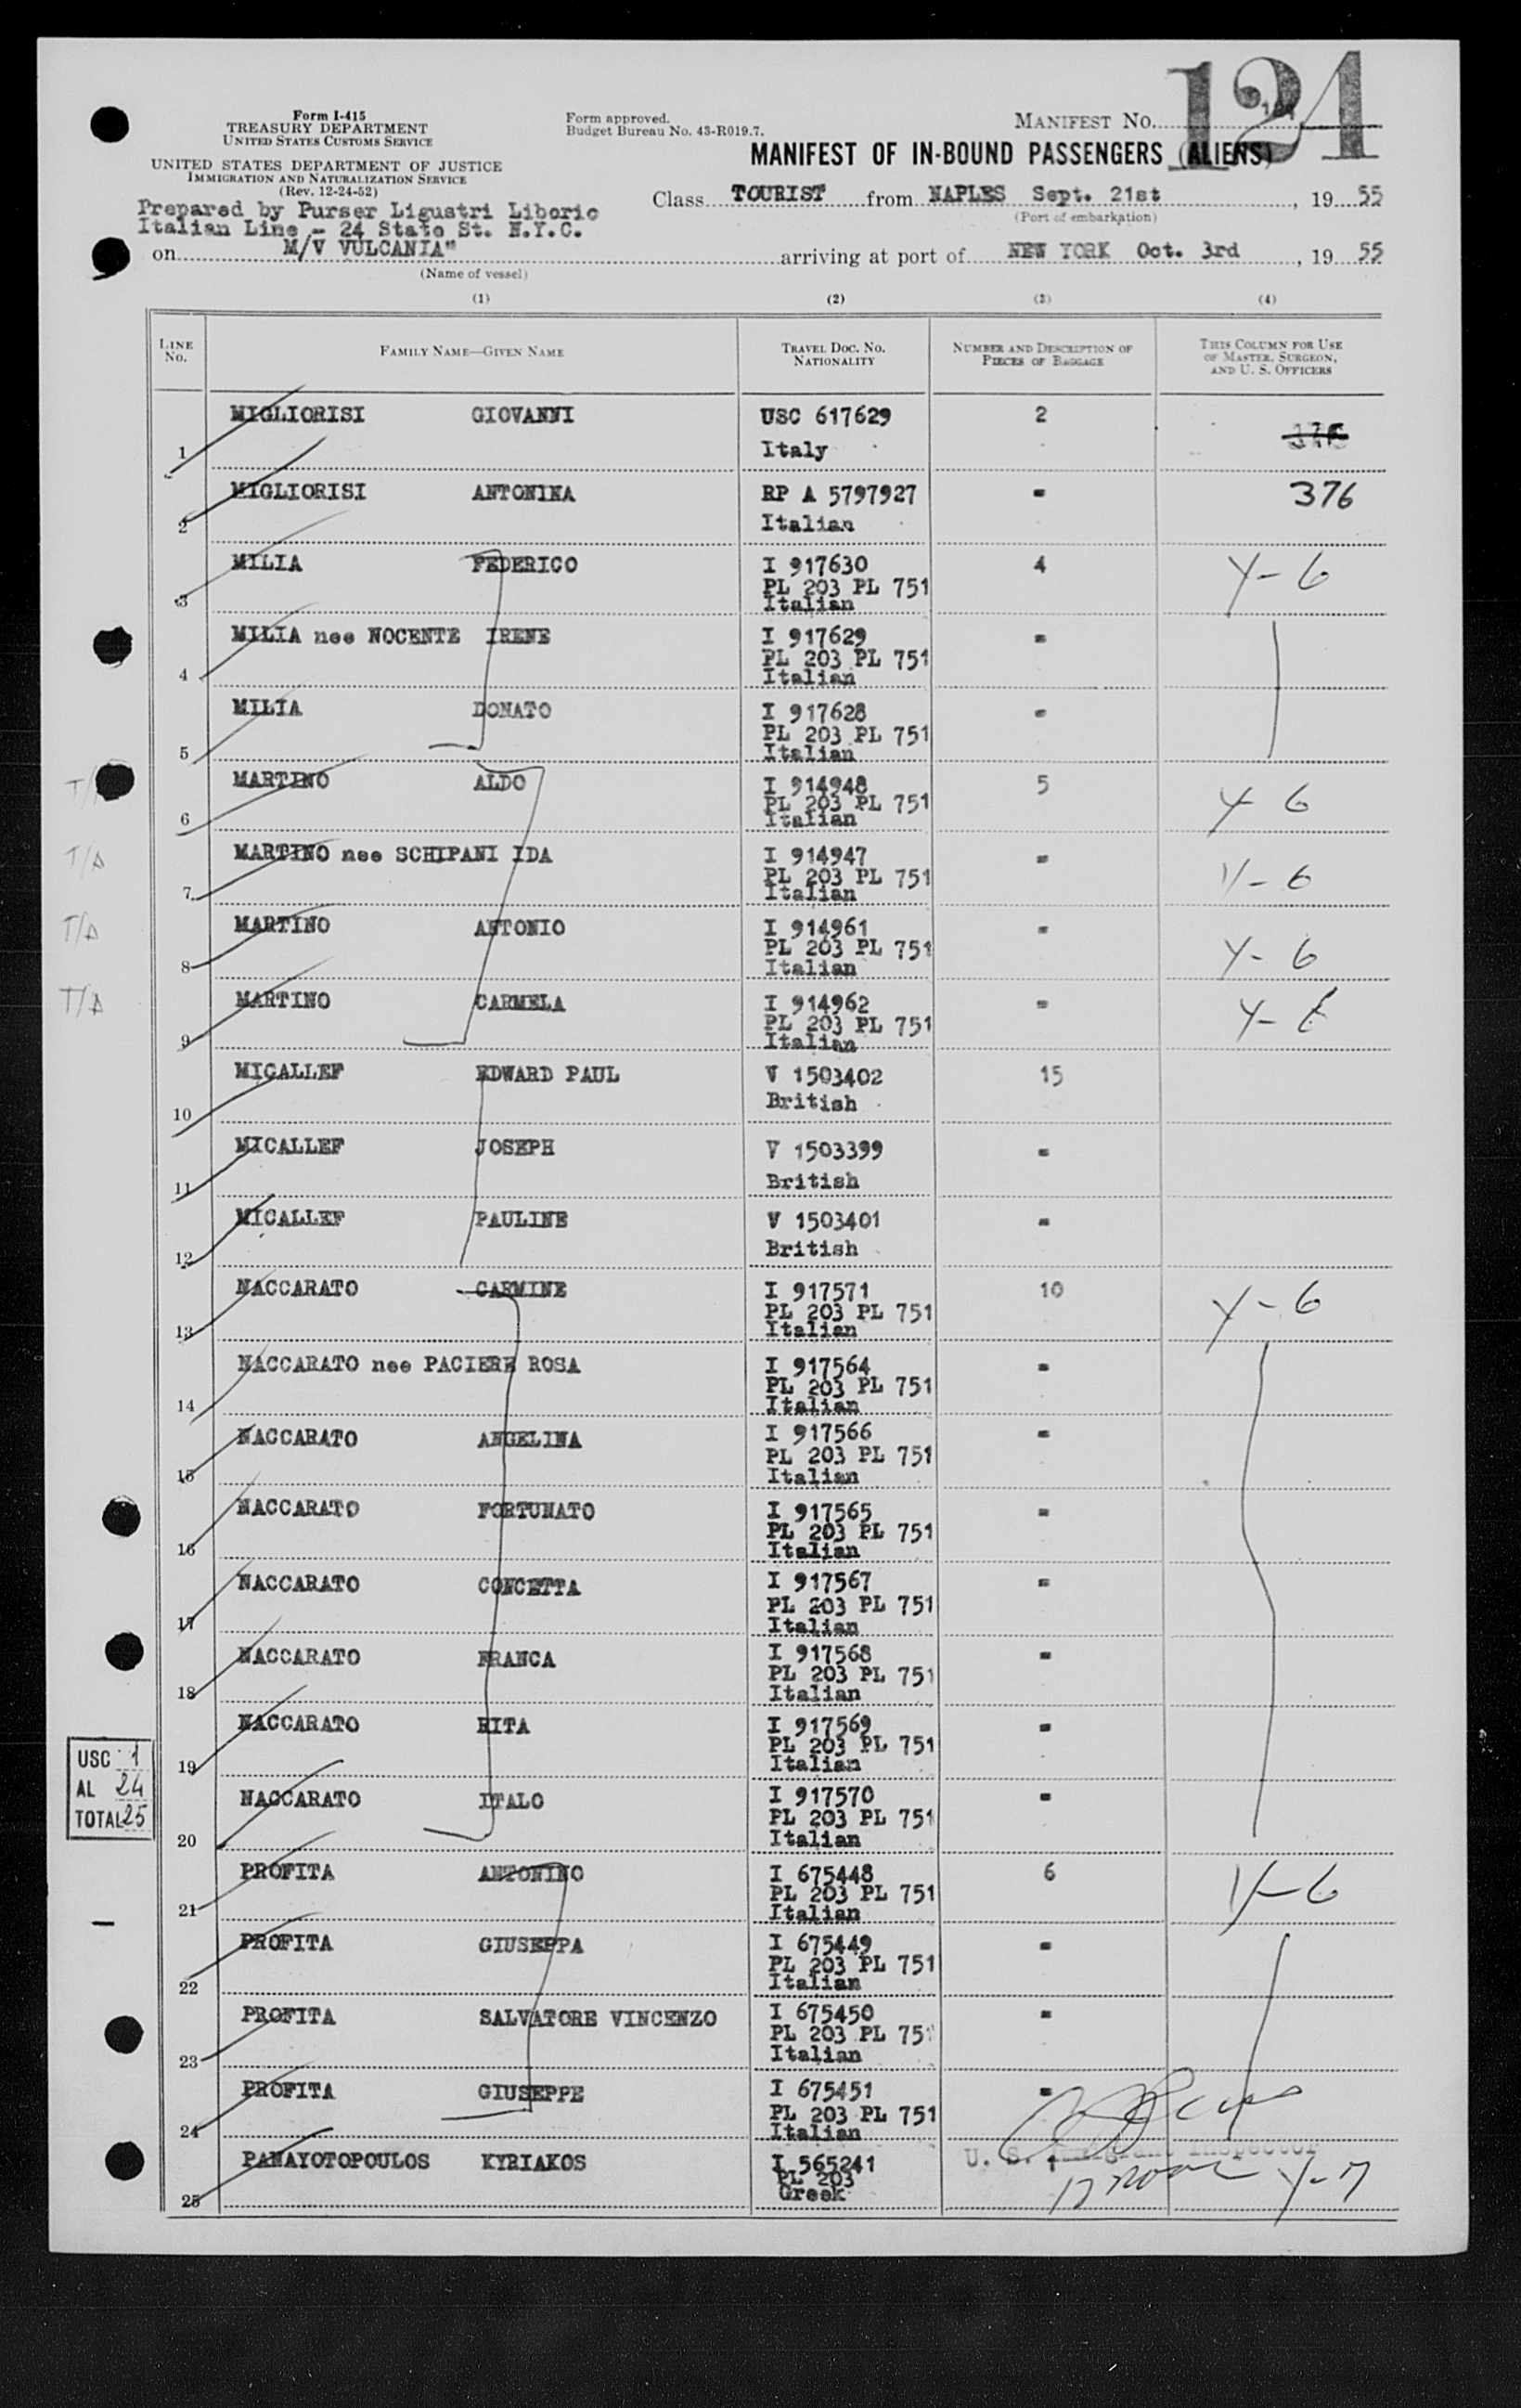 124
Form I-415
TREASURY DEPARTMENT
UNITED STATES CUSTOMS SERVICE
UNITED STATES DEPARTMENT OF JUSTICE
IMMIGRATION AND NATURALIZATION SERVICE
(Rev. 12-24-52)
Form approved.
Budget Bureau No. 43-R019.7.
MANIFEST NO.
MANIFEST OF IN-BOUND PASSENGERS (ALIENS)
Prepared by Purser Ligustri Liborio
Italian Line - 24 State St. N.Y.C.
Class TOURIST from NAPLES Sept. 21st, 19 55
(Port of embarkation)
on M/V VULCANIA" arriving at port of NEW YORK Oct. 3rd, 19 55
(Name of vessel)
(1) (2) (3) (4)
LINE No. FAMILY NAME—GIVEN NAME TRAVEL DOC. NO. NATIONALITY NUMBER AND DESCRIPTION OF PIECES OF BAGGAGE THIS COLUMN FOR USE OF MASTER, SURGEON, AND U. S. OFFICERS
1 MIGLIORISI GIOVANNI USC 617629 2
Italy
2 MIGLIORISI ANTONINA RP A 5797927 - 376
Italian
3 MILIA FEDERICO I 917630 4 Y-6
PL 203 PL 751
Italian
4 MILIA nee NOCENTE IRENE I 917629 -
PL 203 PL 751
Italian
5 MILIA DONATO I 917628 -
PL 203 PL 751
Italian
6 MARTINO ALDO I 914948 5 Y 6
PL 203 PL 751
Italian
T/A 7 MARTINO nee SCHIPANI IDA I 914947 - Y-6
PL 203 PL 751
Italian
T/A 8 MARTINO ANTONIO I 914961 - Y-6
PL 203 PL 751
Italian
T/A 9 MARTINO CARMELA I 914962 - Y-6
PL 203 PL 751
Italian
10 MICALLEF EDWARD PAUL V 1503402 15
British
11 MICALLEF JOSEPH V 1503399 -
British
12 MICALLEF PAULINE V 1503401 -
British
13 NACCARATO CARMINE I 917571 10 Y-6
PL 203 PL 751
Italian
14 NACCARATO nee PACIERE ROSA I 917564 -
PL 203 PL 751
Italian
15 NACCARATO ANGELINA I 917566 -
PL 203 PL 751
Italian
16 NACCARATO FORTUNATO I 917565 -
PL 203 PL 751
Italian
17 NACCARATO CONCETTA I 917567 -
PL 203 PL 751
Italian
18 NACCARATO FRANCA I 917568 -
PL 203 PL 751
Italian
19 NACCARATO RITA I 917569 -
PL 203 PL 751
Italian
20 NACCARATO ITALO I 917570 -
PL 203 PL 751
Italian
USC 1
AL 24
TOTAL 25
21 PROFITA ANTONINO I 675448 6 Y-6
PL 203 PL 751
Italian
22 PROFITA GIUSEPPA I 675449 -
PL 203 PL 751
Italian
23 PROFITA SALVATORE VINCENZO I 675450 -
PL 203 PL 751
Italian
24 PROFITA GIUSEPPE I 675451 -
PL 203 PL 751
Italian
U. S. Immigrant Inspector
25 PANAYOTOPOULOS KYRIAKOS I 565241 Y-7
PL 203
Greek